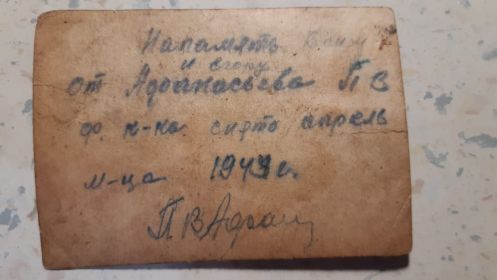 На память
и
от Афанасьева П В
ф. к-ка снято апрель
м-ца 1949 г.
П В Афан